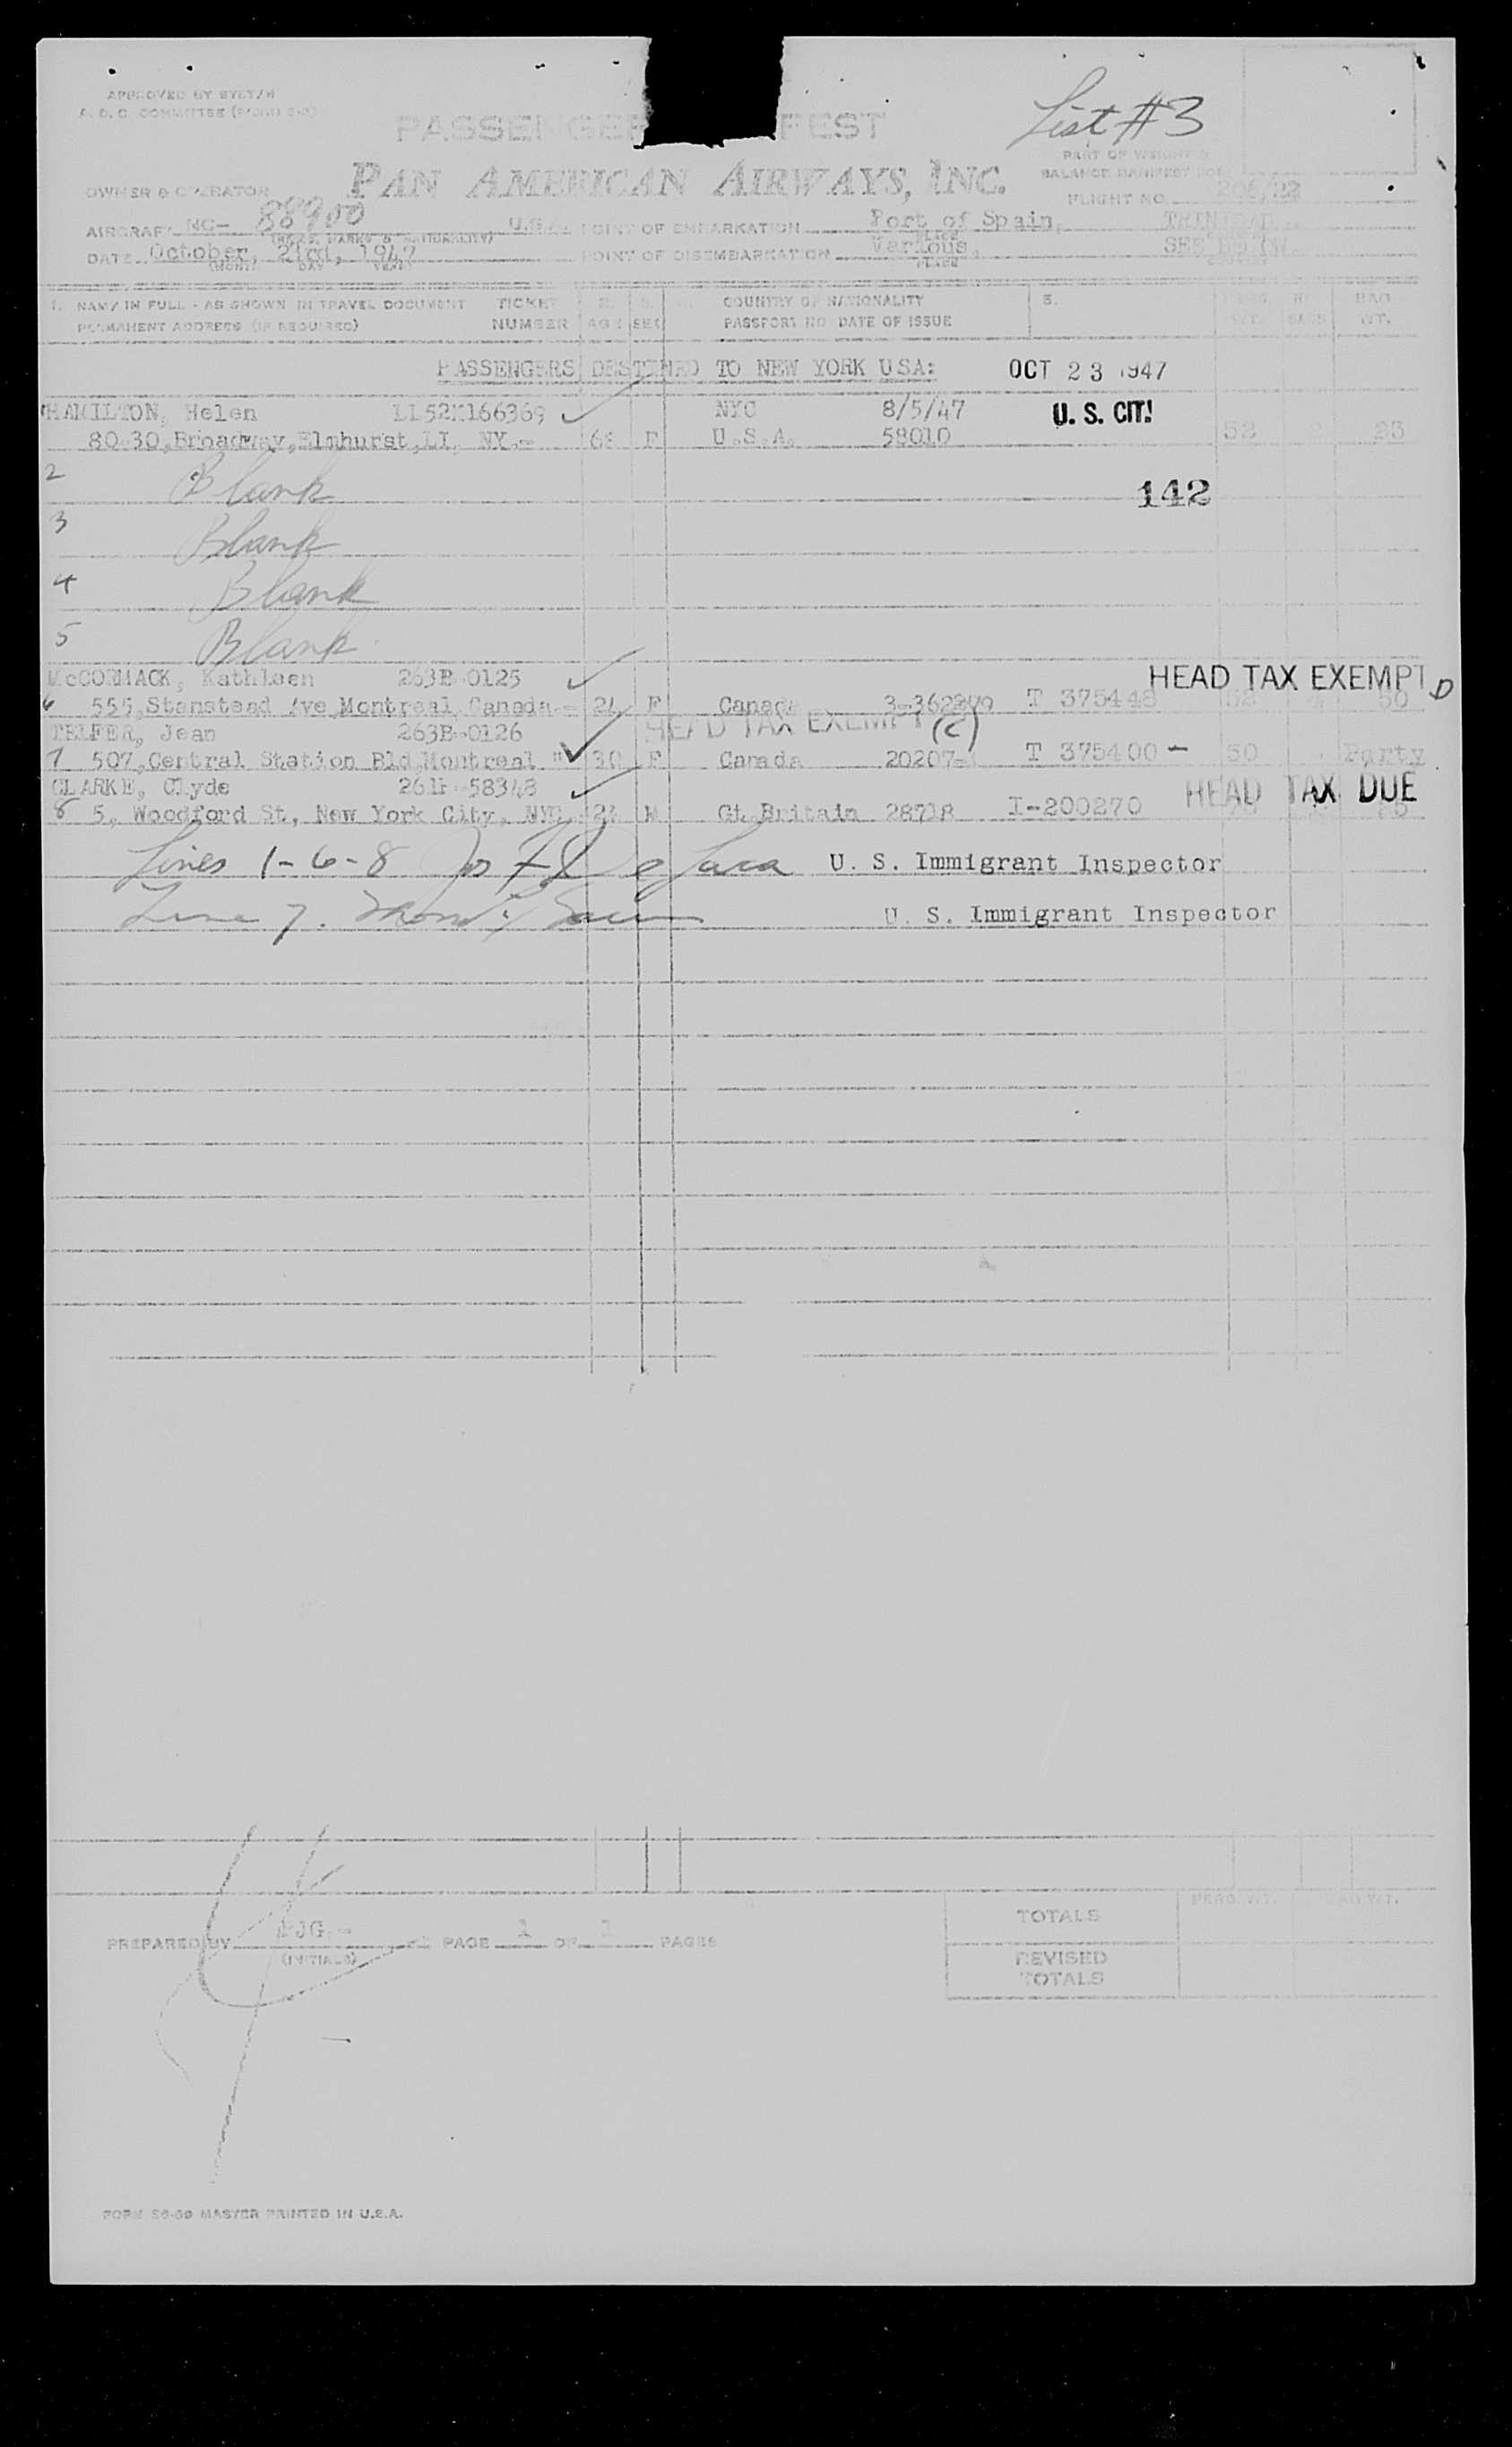 APPROVED BY SYSTEM
A. D. C. COMMITTEE
List #3
PASSENGER FEST
PART OF WEIGHT &
BALANCE MANIFEST NO.
PAN AMERICAN AIRWAYS, INC.
OWNER & OPERATOR
FLIGHT NO. 206/22
AIRCRAFT NC- 88900 U.S.A. POINT OF EMBARKATION Port of Spain, TRINIDAD.
(MARKS & NATIONALITY) PLACE
DATE October, 21st, 1947 POINT OF DISEMBARKATION Various, SEE BELOW.
(MONTH DAY YEAR) PLACE COUNTRY
1. NAME IN FULL - AS SHOWN IN TRAVEL DOCUMENT TICKET 2. 3. COUNTRY OF NATIONALITY 5. PERS. NO. BAG
PERMANENT ADDRESS (IF REQUIRED) NUMBER AGE SEX PASSPORT NO. DATE OF ISSUE WT. BAGS WT.
PASSENGERS DESTINED TO NEW YORK USA: OCT 23 1947
HAMILTON, Helen LL52K166369 NYC 8/5/47 U. S. CIT!
80-30, Broadway, Elmhurst, LI, NY.- 68 F U.S.A. 58010 52 23
2 Blank 142
3 Blank
4 Blank
5 Blank
McCORMACK, Kathleen 263B-0125 HEAD TAX EXEMPT D
6 555, Stanstead Ave Montreal, Canada.- 24 F Canada T 375448 52 50
TELFER, Jean 263B-0126 HEAD TAX EXEMPT (c)
7 507, Central Station Bld, Montreal " 30 F Canada 20207- T 375400 - 50 Party
CLARKE, Clyde HEAD TAX DUE
8 5, Woodford St, New York City, M Gt. Britain 28718 I-200270
Lines 1-6-8 De Lara U. S. Immigrant Inspector
Line 7. U. S. Immigrant Inspector
PERS. WT. BAG WT.
TOTALS
PREPARED BY PAGE 1 OF 1 PAGES
(INITIALS)
REVISED
TOTALS
MASTER PRINTED IN U.S.A.